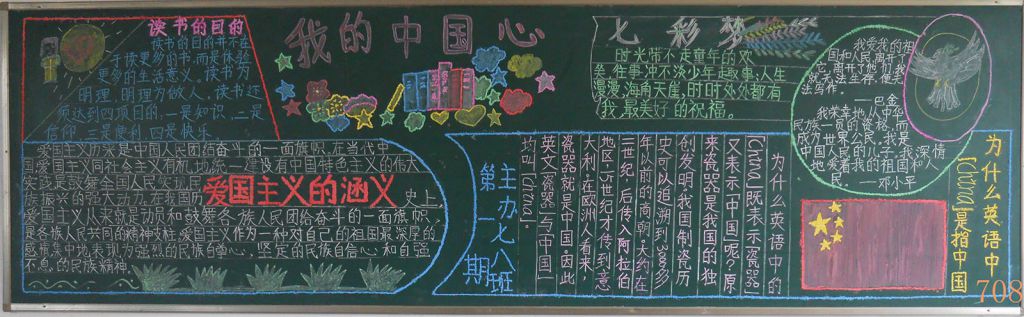 读书的目的
读书的目的并不在
于读更多的书,而是体验
更多的生活意义,读书为
明理,明理为做人,读书还
须达到四项目的,一是知识,二是
信仰,三是便利,四是快乐
我的中国心
七彩梦
时光带不走童年的欢
往事冲不淡少年趣事,人生
漫漫,海角天涯,时时处处都有
我最美好的祝福。
我爱我的祖
国和人民,离开了
法写作。
——巴金
——邓小平
爱国主义的涵义
爱国主义历来是中国人民团结奋斗的一面旗帜,在当代中
国爱国主义同社会主义有机地统一建设有中国特色主义的伟大
实践是鼓舞全国人民实现民
族振兴的巨大动力,在我国历
史上
爱国主义从来就是动员和鼓舞各族人民团结奋斗的一面旗帜,
是各族人民共同的精神支柱,爱国主义作为一种对自己的祖国最深厚的
感情集中地表现为强烈的民族自尊心、坚定的民族自信心和自强
不息的民族精神。
主办七八班
第一期
为什么英语中的
「China」既表示瓷器
又表示中国呢?原
来瓷器是我国的独
创发明,我国制瓷历
史可以追溯到3000多
年以前的商朝,大约在
二世纪后传入阿拉伯
地区,15世纪才传到意
大利,在欧洲人看来,
瓷器就是中国,因此
英文瓷器与中国
均叫「China」。
为什么英语中
「China」是指中国
708